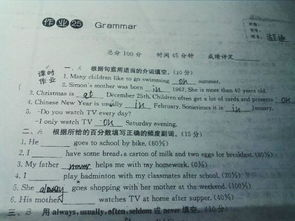 作业25 Grammar
总分 100 分 时间 45 分钟 成绩评定
课时作业
一、A 根据句意用适当的介词填空。(10分)
1. Many children like to go swimming on summer.
2. Simon's mother was born in 1967. She is more than 40 years old.
3. Christmas is at December 25th. Children often get a lot of cards and presents on
4. Chinese New Year is usually in February. Sometimes it is in January.
5. -Do you watch TV every day?
-I only watch TV on Saturday evening.
二、A 根据所给的百分数填写正确的频度副词。(15分)
1. He goes to school by bike. (80%)
2. I have some bread, a carton of milk and two eggs for breakfast. (80%)
3. My father never helps me with my homework. (0%)
4. I play badminton with my classmates after school. (70%)
5. She always goes shopping with her mother at the weekend. (100%)
6. His mother watches TV at home after supper. (40%)
三、B 用 always, usually, often, seldom 或 never 填空。